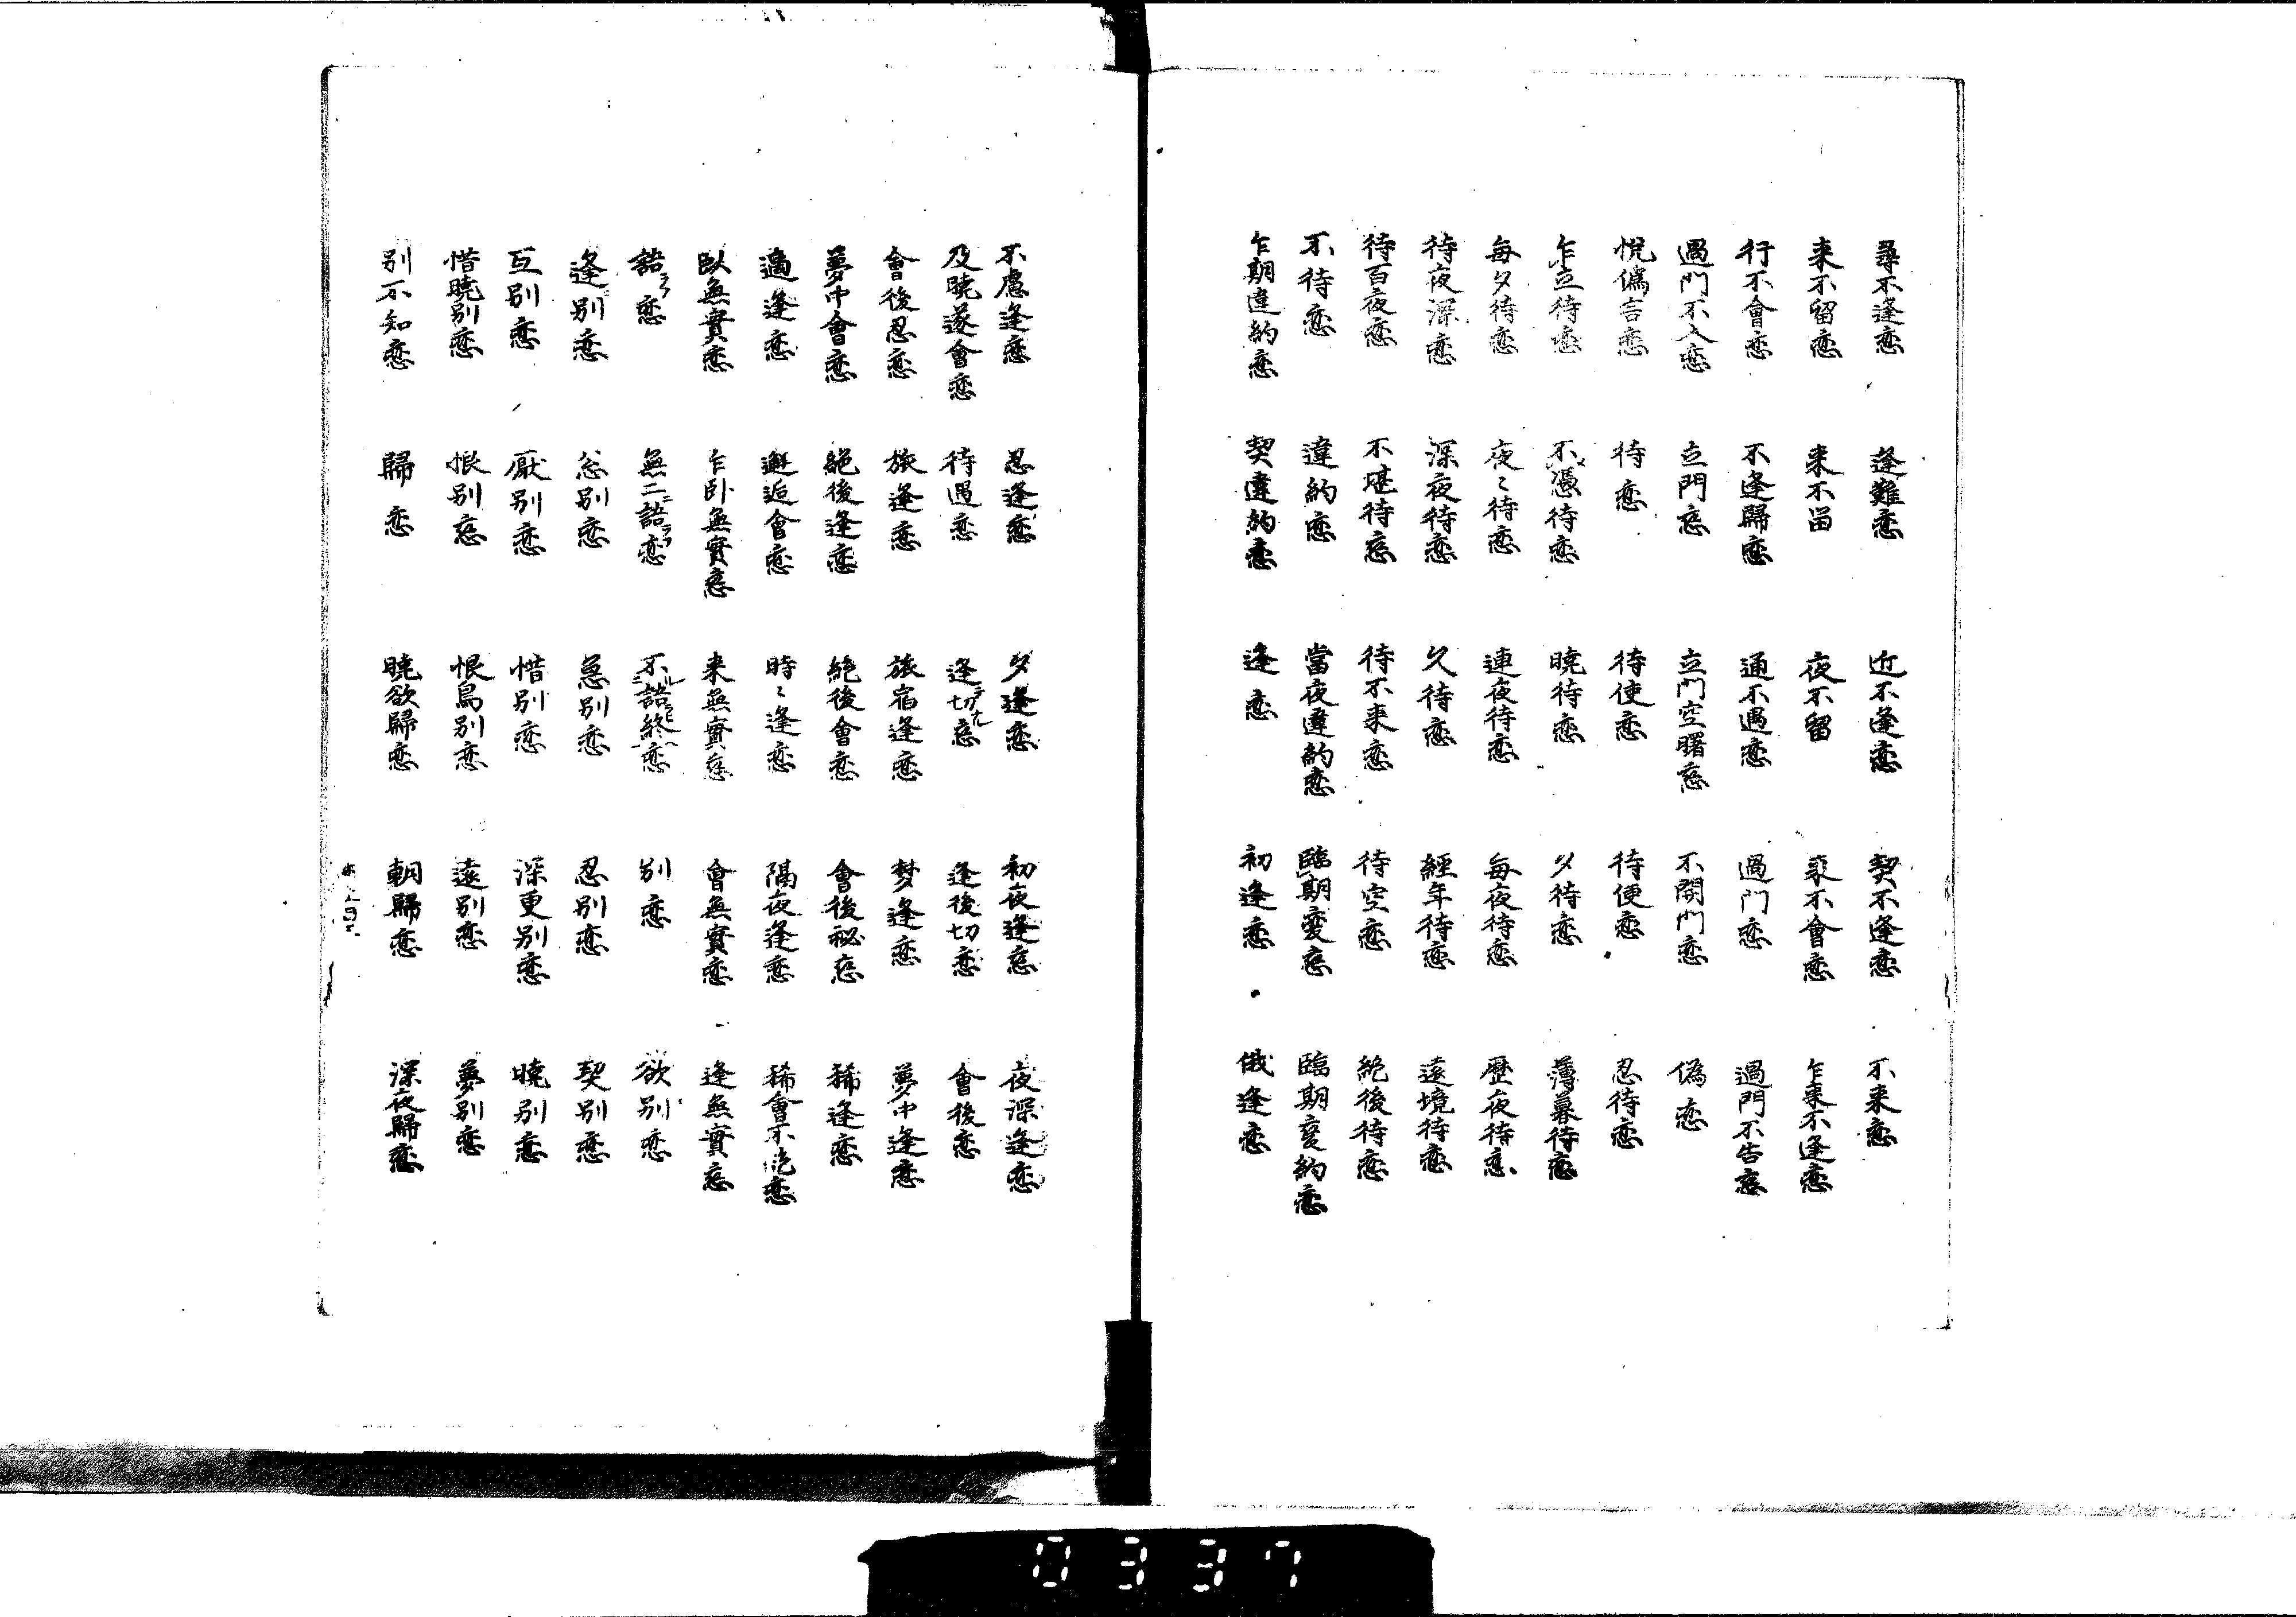 尋不逢恋　逢難恋　近不逢恋　契不逢恋　不来恋
来不留恋　来不留　夜不留　来不會恋　乍来不逢恋
行不會恋　不逢歸恋　通不遇恋　過門恋　過門不告恋
過門不入恋　立門恋　立門空曙恋　不開門恋　偽恋
悦偽言恋　待恋　待使恋　待便恋　忍待恋
乍立待恋　不憑待恋　暁待恋　夕待恋　薄暮待恋
毎夕待恋　夜〻待恋　連夜待恋　毎夜待恋　歴夜待恋
待夜深恋　深夜待恋　久待恋　經年待恋　遠境待恋
待百夜恋　不堪待恋　待不来恋　待空恋　絶後待恋
不待恋　違約恋　當夜違約恋　臨期変恋　臨期変約恋
乍期違約恋　契違約恋　逢恋　初逢恋　俄逢恋
不慮逢恋　忍逢恋　夕逢恋　初夜逢恋　夜深逢恋
及暁遂會恋　待遇恋　逢切恋　逢後切恋　會後恋
會後忍恋　旅逢恋　旅宿逢恋　梦逢恋　夢中逢恋
夢中會恋　絶後逢恋　絶後會恋　會後祕恋　稀逢恋
適逢恋　邂逅會恋　時〻逢恋　隔夜逢恋　稀會不絶恋
臥無實恋　乍卧無實恋　来無實恋　會無實恋　逢無實恋
誥恋　無二誥恋　不誥終恋　別恋　欲別恋
逢別恋　忩別恋　急別恋　忍別恋　契別恋
互別恋　厭別恋　惜別恋　深更別恋　暁別恋
惜暁別恋　恨別恋　恨鳥別恋　遠別恋　夢別恋
別不知恋　歸恋　暁欲歸恋　朝歸恋　深夜歸恋
0337